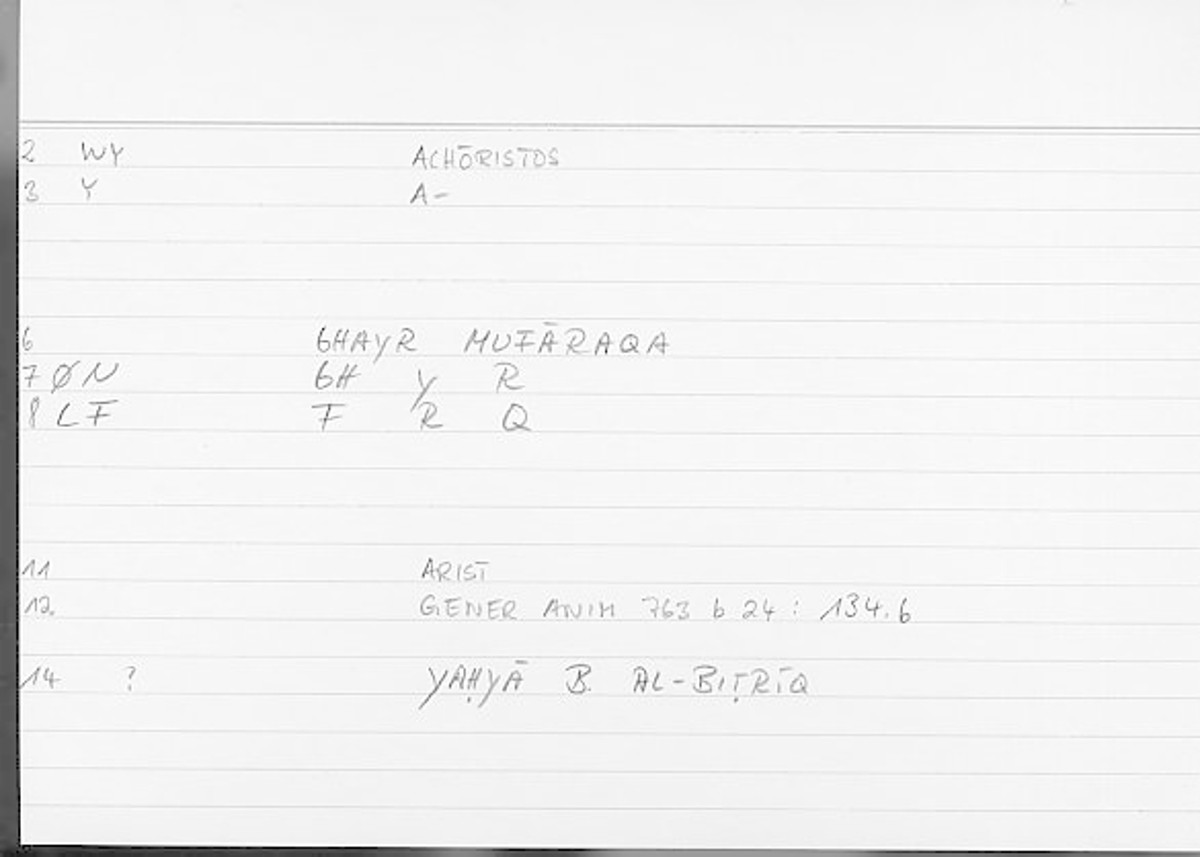 2 WY ACHŌRISTOS
3 Y A-
6 GHAYR MUFĀRAQA
7 ØN GH Y R
8 LF F R Q
11 ARIST
12 GENER ANIM 763 b 24 : 134.6
14 ? YAḤYĀ B. AL-BIṬRĪQ